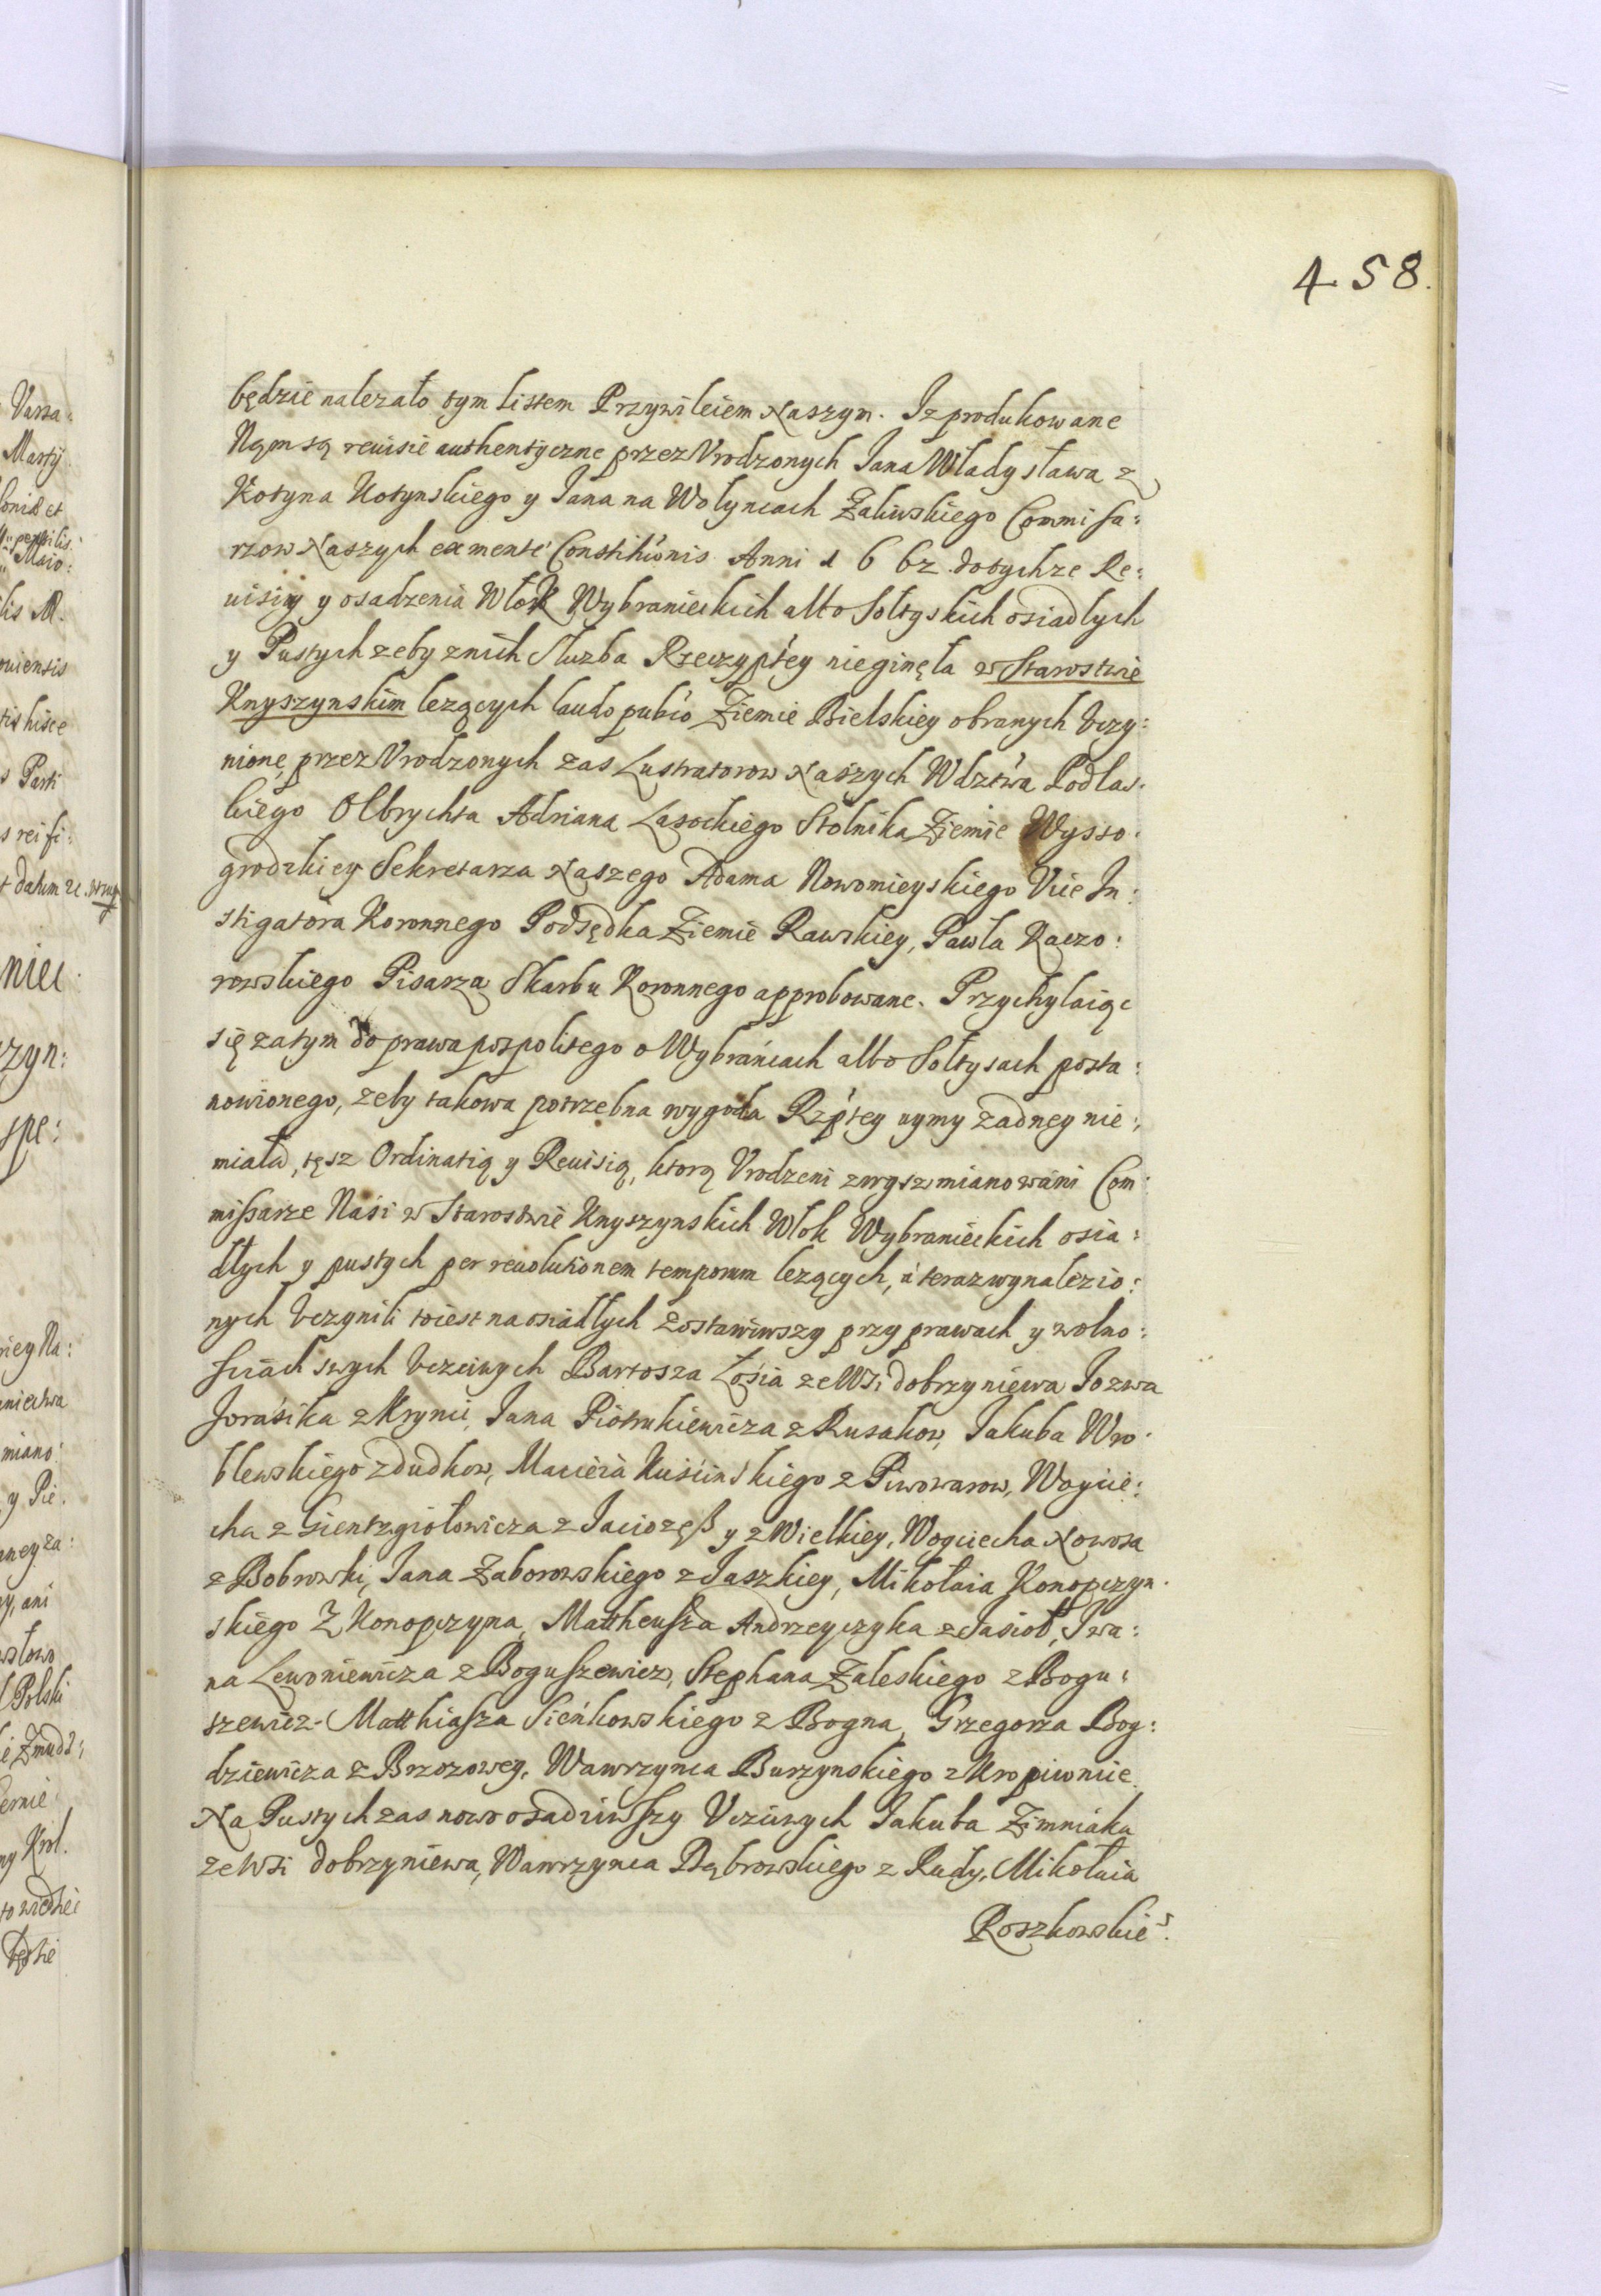 458.
będzie nalezało tym Listem Przywileiem Naszym. Iz produkowane
Nąm są reuisie authentyczne przez Vrodzonych Jana Władysława z
Kotyna Kotynskiego y Jana na Wolyncach Zaliwskiego Commissa:
rzow Naszych ex mente Constitiónis Anni 1662 dotychze Re:
uisiy y osadzenia Włok Wybranieckich albo Sołtyskich osiadłych
y Pustych zeby znich Służba Rzeczyptey nieginęła w Starostwie
Knyszynskim lezących laudo pubío Ziemie Bielskiey obranych Vczy:
nione, przez Vrodzonych zas Lustratorow Naszych Wdztwa Podlas:
kiego Olbrychta Adriana Lasockiego Stolnika Ziemie Wysso:
grodzkiey Sekretarza Naszego Adama Nowomieyskiego Vice In:
stigatora Koronnego Podsędka Ziemie Rawskiey, Pawła Kaczo:
rowskiego Pisarza Skarbu Koronnego approbowane. Przychylaiąc
się zatym do prawa pospolitego o Wybrańcach albo Sołtysach posta:
nowionego, zeby takowa potrzebna wygoda Rzptey uymy zadney nie:
miała, tęsz Ordinatią y Reuisią, ktorą Vrodzeni zwysz mianowani Com:
missarze Nasi w Starostwie Knyszynskich Włok Wybranieckich osia:
dłych y pustych per reuolutionem temporum lezących, á teraz wynalezio:
nych Vczynili toiest na osiadłych zostawiwszy przy prawach y wolno:
sciach swych Vczciwych Bartosza Łosia ze Wsi dobrzyniewa Jozwa
Jorasika z Krynic, Jana Piotrukiewicza z Rusakow, Jakuba Wro:
blewskiego z dudkow, Macieia Kuścinskiego z Piwowarow, Woycie:
cha z Gientzgiołowicza z Jaciozęß y z Wielkiey, Woyciecha Nowosa
z Bobrowki, Jana Zaborowskiego z Jaszkiey, Mikołaia Konopczyn:
skiego Z Konopczyna, Mattheusza Andrzeyczyka z Jasioł, Iwa:
na Lewoniewicza z Boguszewicz, Stephana Zaleskiego z Bogu:
szewicz. Matthiasza Sieńkowskiego z Bogna, Grzegorza Bog:
dziewicza z Brzozowey, Wawrzynca Burzynskiego z Kropiwnice.
Na Pustych zas nowo osadziwszy Vcziwych Jakuba Zimniaka
ze Wsi dobrzyniewa, Wawrzynca Dąbrowskiego z Rudy, Mikołaia
Roszkowskie: